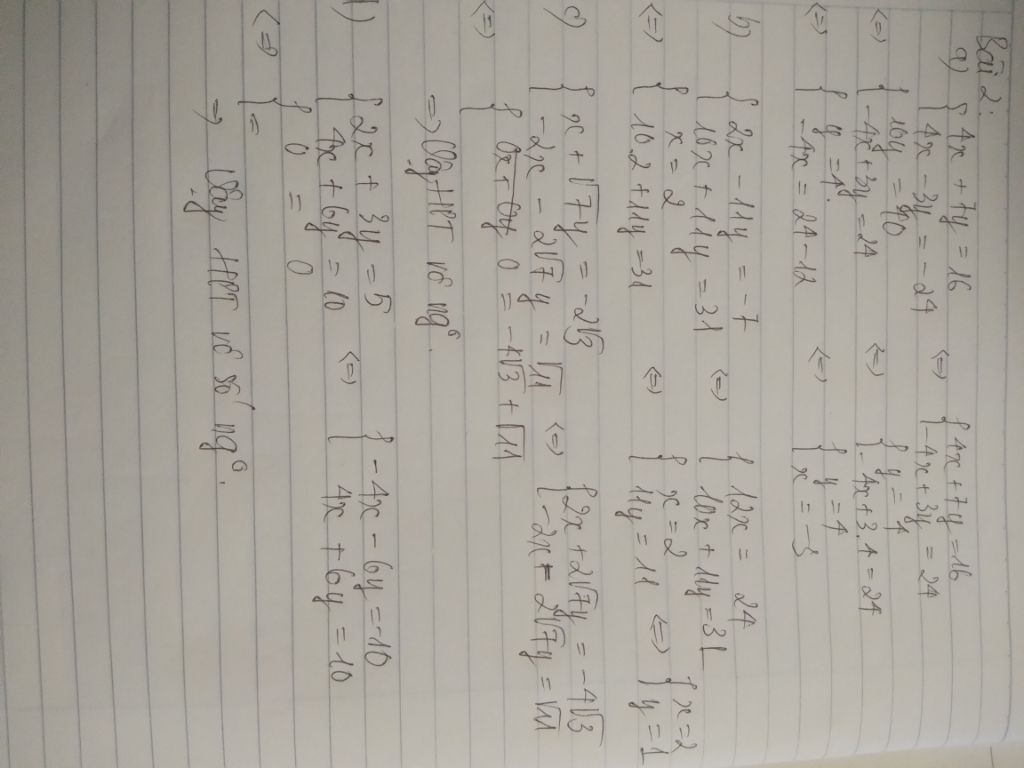 Bài 2:
a) { 4x + 7y = 16 <=> { 4x + 7y = 16
{ 4x - 3y = -24 { -4x + 3y = 24
<=> { 10y = 40 <=> { y = 4
{ -4x + 3y = 24 { -4x + 3.4 = 24
<=> { y = 4. <=> { y = 4
{ -4x = 24 - 12 { x = -3
b) { 2x - 11y = -7 <=> { 12x = 24
{ 10x + 11y = 31 { 10x + 11y = 31
<=> { x = 2 <=> { x = 2 <=> { x = 2
{ 10.2 + 11y = 31 { 11y = 11 { y = 1
c) { x + √7y = -2√3 <=> { 2x + 2√7y = -4√3
{ -2x - 2√7y = √11 { -2x - 2√7y = √11
<=> { 0x + 0y 0 = -4√3 + √11
=> Vậy HPT vô ngº.
d) { 2x + 3y = 5 <=> { -4x - 6y = -10
{ 4x + 6y = 10 { 4x + 6y = 10
<=> { 0 = 0
{ =
=> Vậy HPT vô số ngº.